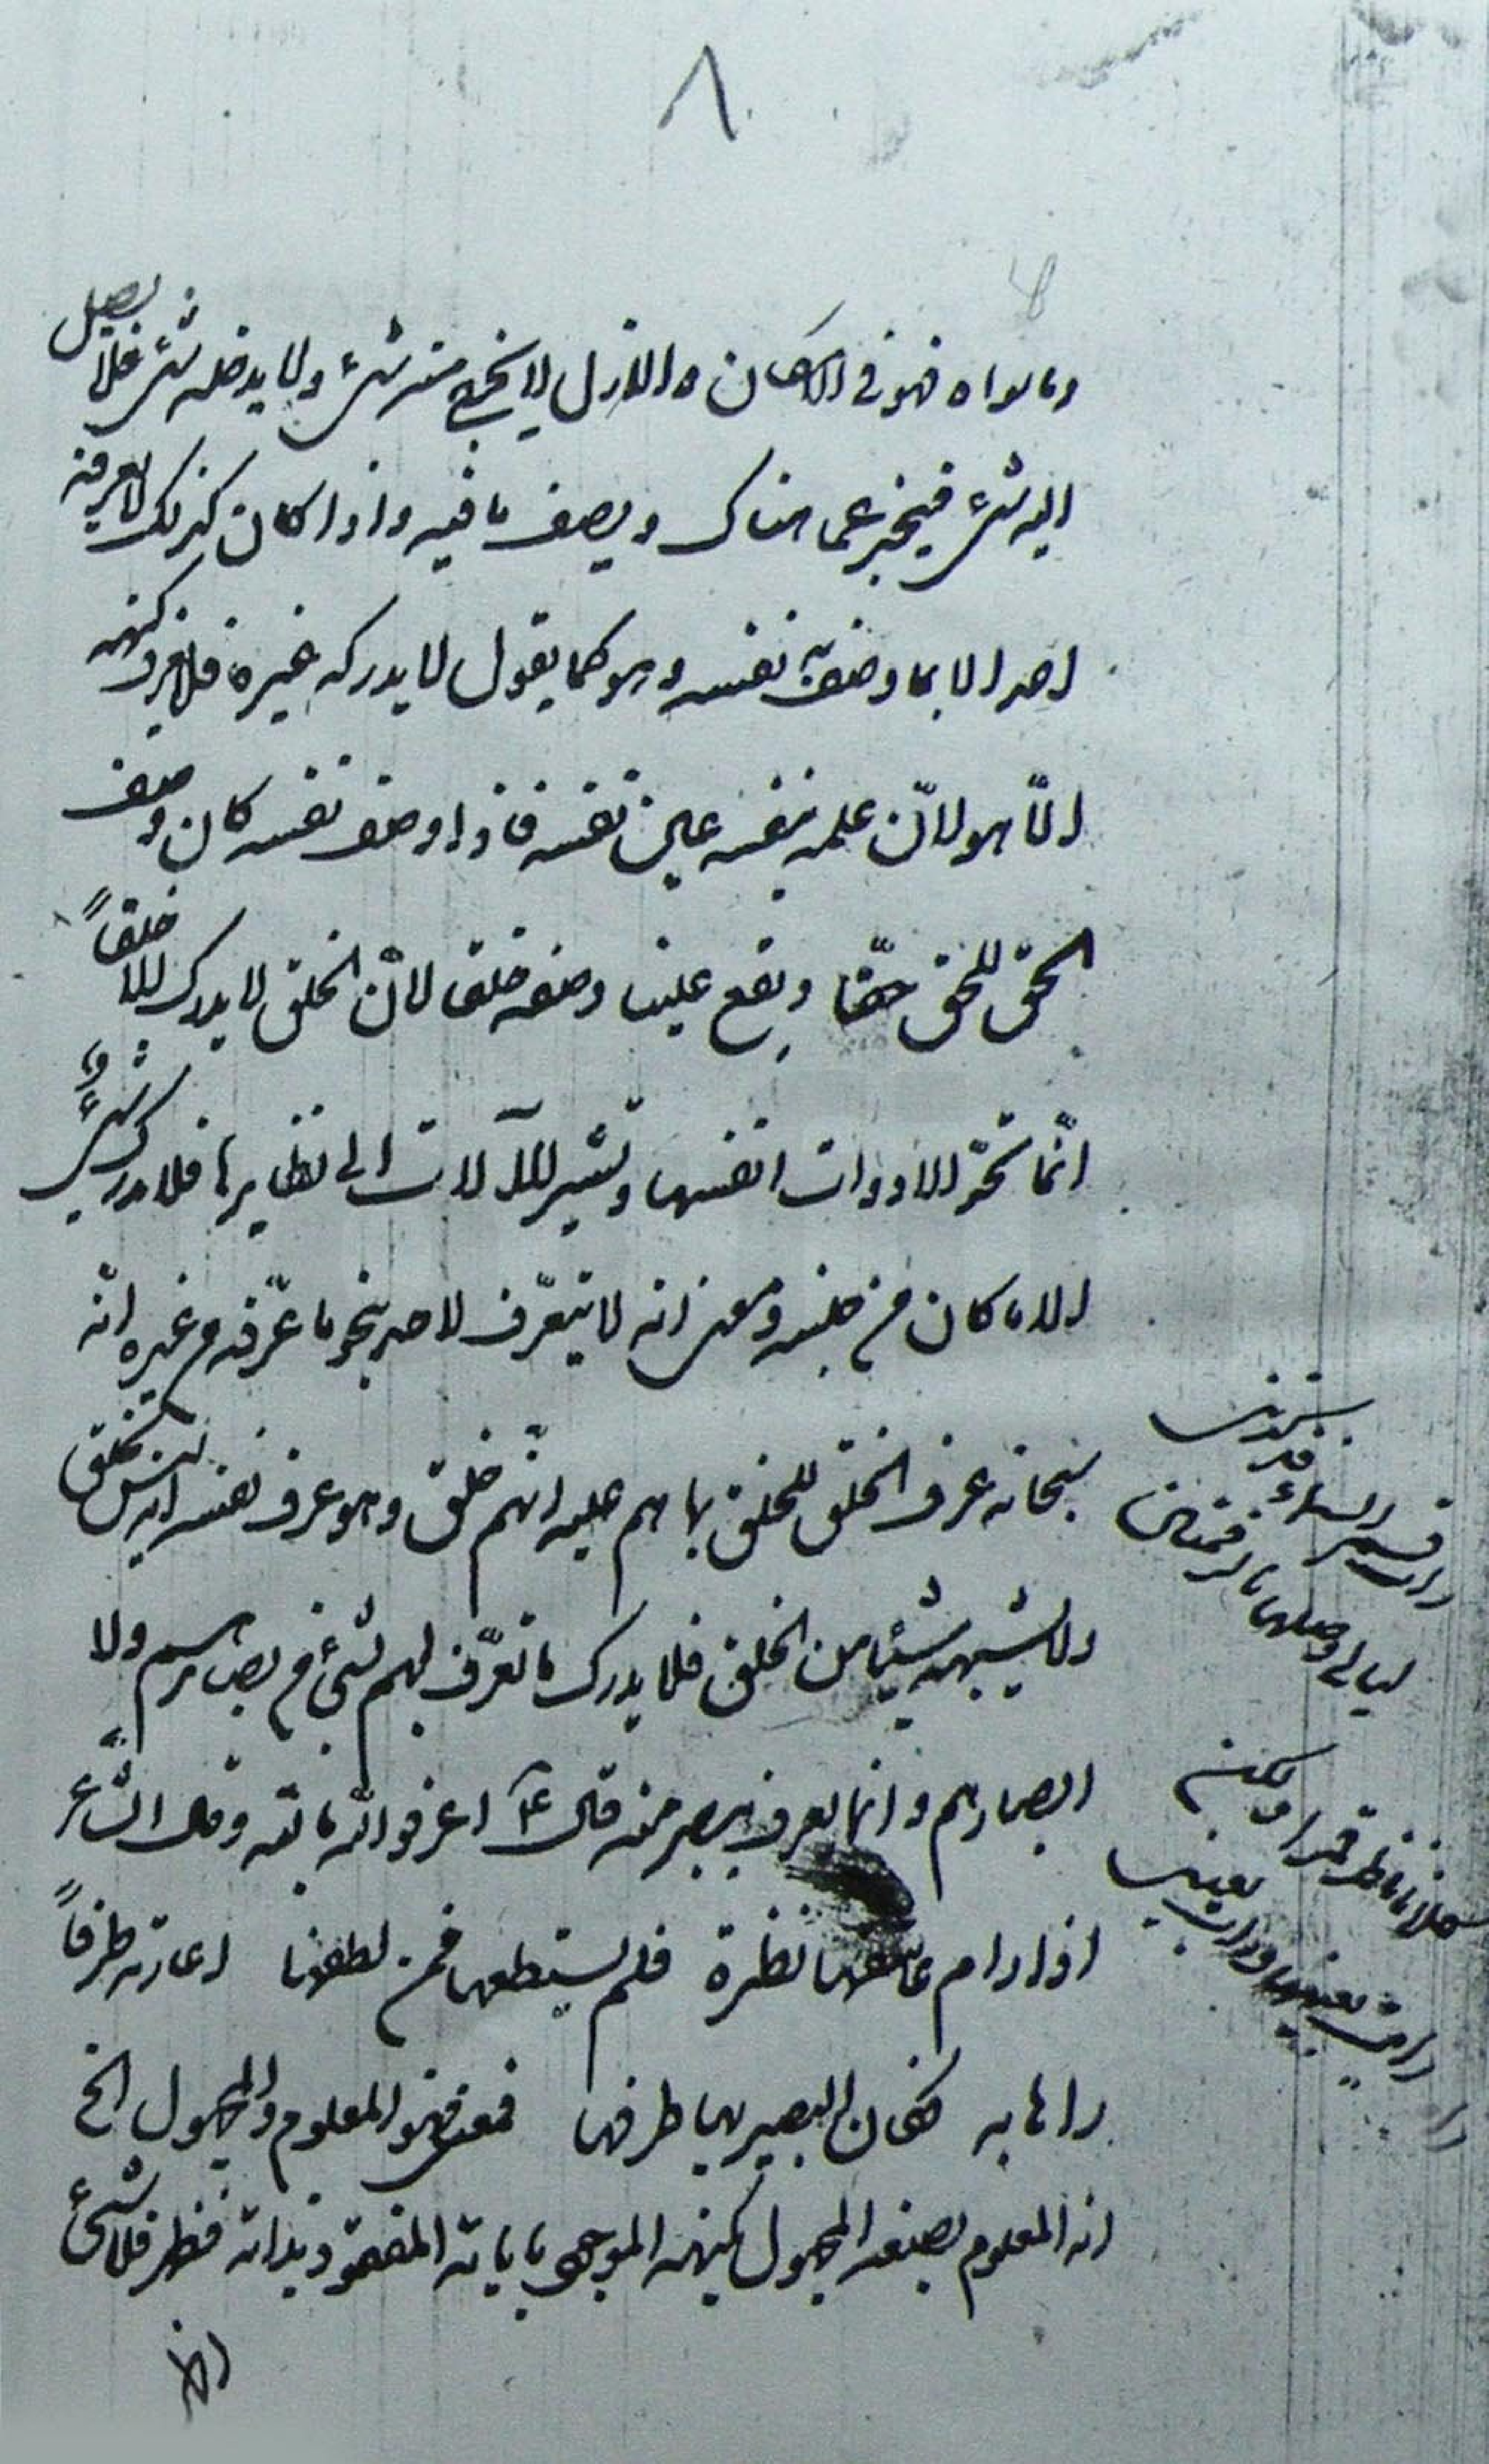 ٨
وما سواه فهو في الامكان والازل لا يخرج منه شيء ولا يدخله شيء فلا يصل
اليه شيء فيخبر عما هناك ويصف ما فيه واذا كان كذلك لا يعرفه
احد الا بما وصف به نفسه وهو كما يقول لا يدركه غيره فلا يعرف كنهه
الّا هو لانّ علمه بنفسه عين نفسه فاذا وصف نفسه كان وصف
الحق للحق حقّا ويقع علينا وصفه خلقا لانّ الخلق لا يدرك الا خلقاً
انّما تحدّ الادوات انفسها وتشير الآلات الى نظايرها فلا يدرك شيءٌ
الا ما كان من جنسه ومعنى انه لا يتعرّف لاحد بنحو ما عرّفه من غيره انّه
سبحانه عرف الخلق للخلق بما هم عليه انّهم خلق وهو عرف نفسه انه ليس بخلق
ولا يشبهه شيئا من الخلق فلا يدرك ما تعرّف لهم بشيء من بصائرهم ولا
ابصارهم وانما يعرف ببصر منه قال ع اعرفوا الله بالله وقال الشاعر
اذا رام عاشقها نظرة فلم يستطعها فمن لطفها اعارته طرفاً
رآها به فكان البصير بها طرفها فمعنى فهو المعلوم والمجهول الخ
انه المعلوم بصنعه المجهول بكنهه الموجود باياته المفقود بذاته فظهر فلا شيء
اظ
رات قمر السماء فذكرتني
ليالي وصلها بالرقمتين
كلانا ناظر قمرا ولكن
رايت بعينها ورات بعيني